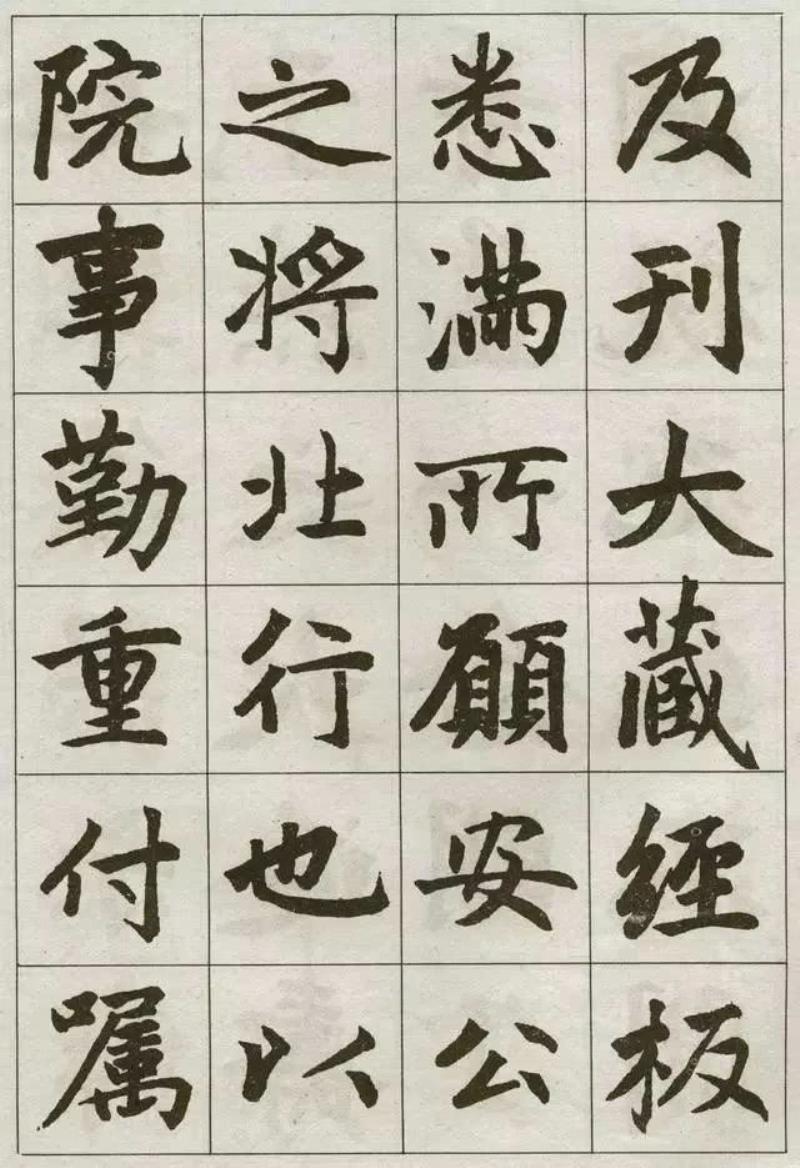 及刊大藏經板
悉滿所願安公
之將北行也以
院事勤重付嘱